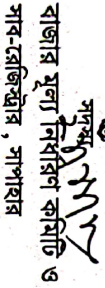 সদস্য
বাজার মূল্য নির্ধারণ কমিটি ও
সাব-রেজিস্ট্রার, সাপাহার